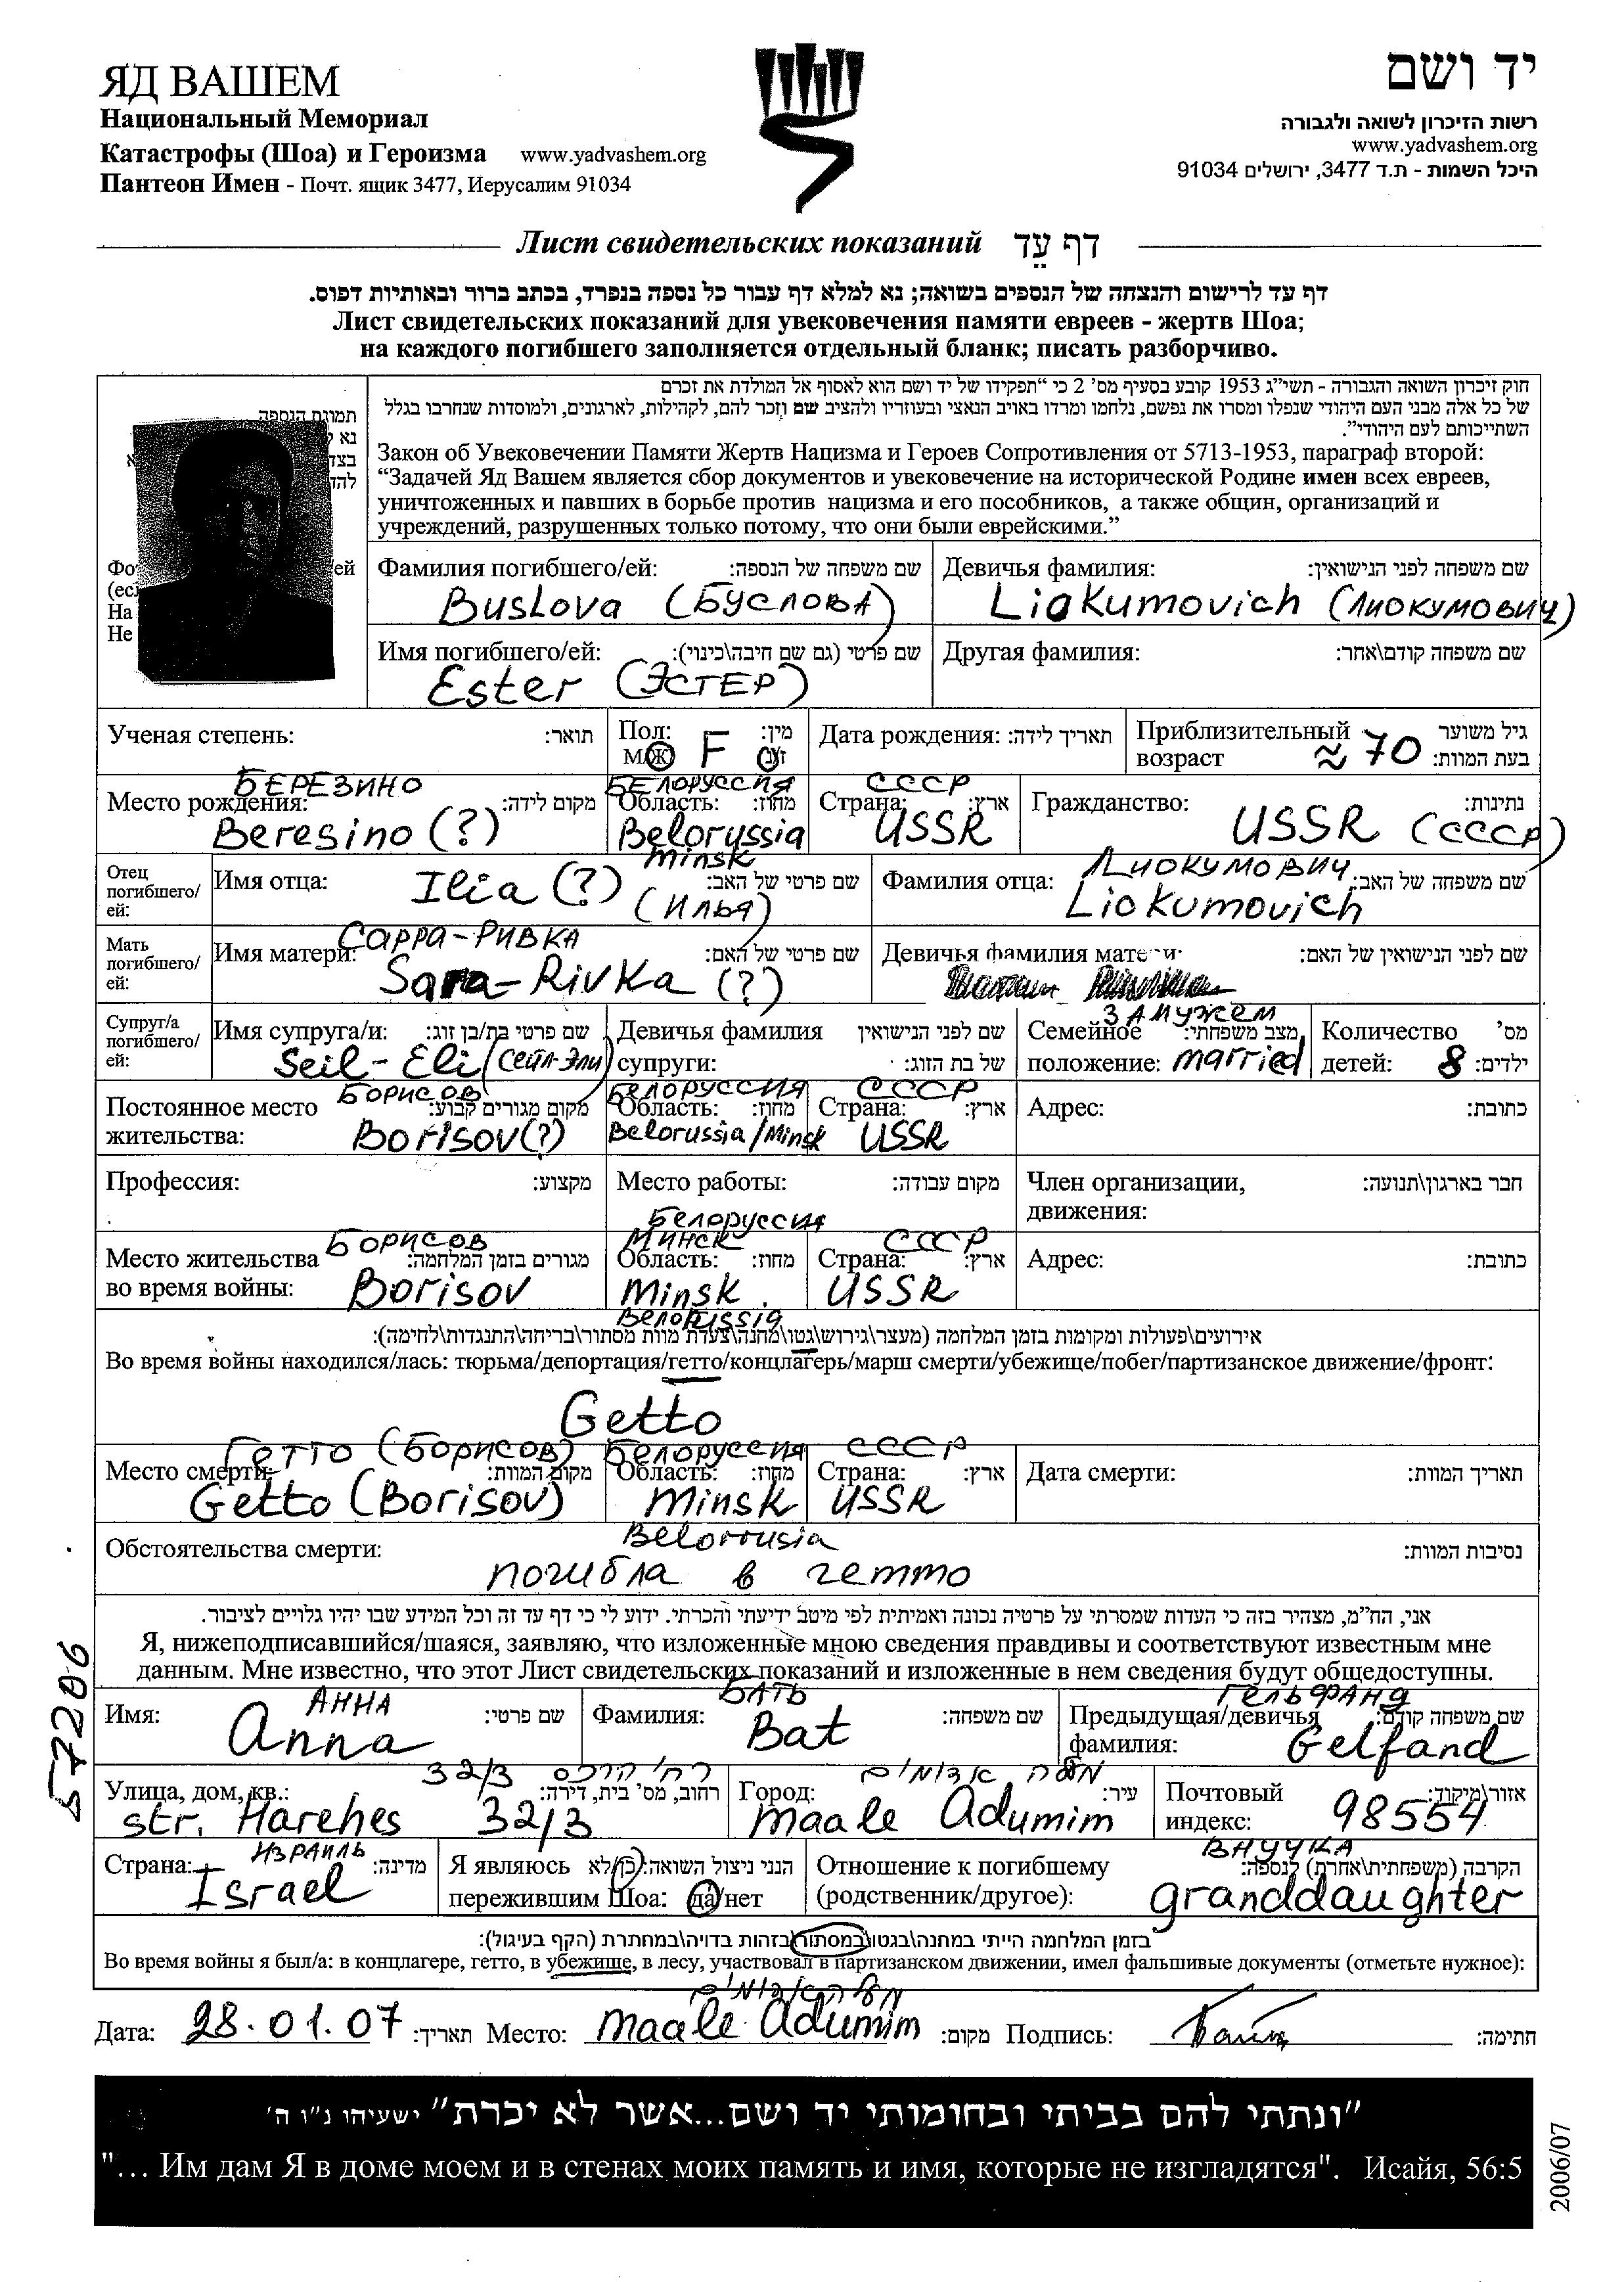 ЯД ВАШЕМ
Национальный Мемориал
Катастрофы (Шоа) и Героизма www.yadvashem.org
Пантеон Имен - Почт. ящик 3477, Иерусалим 91034
יד ושם
רשות הזיכרון לשואה ולגבורה
www.yadvashem.org
היכל השמות - ת.ד 3477, ירושלים 91034
Лист свидетельских показаний דף עֵד
דף עד לרישום והנצחה של הנספים בשואה; נא למלא דף עבור כל נספה בנפרד, בכתב ברור ובאותיות דפוס.
Лист свидетельских показаний для увековечения памяти евреев - жертв Шоа;
на каждого погибшего заполняется отдельный бланк; писать разборчиво.
תמונת הנספה
נא
בצד
להד
Фо ей
(есл
На
Не
חוק זיכרון השואה והגבורה - תשי"ג 1953 קובע בסעיף מס' 2 כי "תפקידו של יד ושם הוא לאסוף אל המולדת את זכרם
של כל אלה מבני העם היהודי שנפלו ומסרו את נפשם, נלחמו ומרדו באויב הנאצי ובעוזריו ולהציב שם וזכר להם, לקהילות, לארגונים, ולמוסדות שנחרבו בגלל
השתייכותם לעם היהודי".
Закон об Увековечении Памяти Жертв Нацизма и Героев Сопротивления от 5713-1953, параграф второй:
“Задачей Яд Вашем является сбор документов и увековечение на исторической Родине имен всех евреев,
уничтоженных и павших в борьбе против нацизма и его пособников, а также общин, организаций и
учреждений, разрушенных только потому, что они были еврейскими.”
Фамилия погибшего/ей: שם משפחה של הנספה:
Buslova (БУСЛОВА)
Девичья фамилия: שם משפחה לפני הנישואין:
Liokumovich (ЛИОКУМОВИЧ)
Имя погибшего/ей: שם פרטי (גם שם חיבה\כינוי):
Ester (ЭСТЕР)
Другая фамилия: שם משפחה קודם\אחר:
Ученая степень: תואר:
Пол: מין:
М/Ж F ז/נ
Дата рождения: תאריך לידה:
Приблизительный גיל משוער
возраст ≈ 70 בעת המוות:
БЕРЕЗИНО
Место рождения: מקום לידה:
Beresino (?)
БЕЛОРУССИЯ
Область: מחוז:
Belorussia
Minsk
СССР
Страна: ארץ:
USSR
Гражданство: נתינות:
USSR (СССР)
Отец погибшего/ей:
Имя отца: Ilia (?) שם פרטי של האב:
(ИЛЬЯ)
ЛИОКУМОВИЧ
Фамилия отца: שם משפחה של האב:
Liokumovich
Мать погибшего/ей:
САРРА-РИВКА
Имя матери: שם פרטי של האם:
Sara-Rivka (?)
Девичья фамилия матери: שם לפני הנישואין של האם:
Супруг/а погибшего/ей:
Имя супруга/и: שם פרטי בת/בן זוג:
Seil-Eli (СЕЙЛ-ЭЛИ)
Девичья фамилия שם לפני הנישואין
супруги: של בת הזוג:
ЗАМУЖЕМ
Семейное מצב משפחתי:
положение: married
Количество מס'
детей: 8 ילדים:
БОРИСОВ
Постоянное место מקום מגורים קבוע:
жительства: Borisov(?)
БЕЛОРУССИЯ
Область: מחוז:
Belorussia/Minsk
СССР
Страна: ארץ:
USSR
Адрес: כתובת:
Профессия: מקצוע:
Место работы: מקום עבודה:
Член организации, חבר בארגון\תנועה:
движения:
БОРИСОВ
Место жительства מגורים בזמן המלחמה:
во время войны: Borisov
БЕЛОРУССИЯ
МИНСК
Область: מחוז:
Minsk
Belorussia
СССР
Страна: ארץ:
USSR
Адрес: כתובת:
אירועים\פעולות ומקומות בזמן המלחמה (מעצר\גירוש\גטו\מחנה\צעדת מוות מסתור\בריחה\התנגדות\לחימה):
Во время войны находился/лась: тюрьма/депортация/гетто/концлагерь/марш смерти/убежище/побег/партизанское движение/фронт:
Getto
ГЕТТО (БОРИСОВ)
Место смерти: מקום המוות:
Getto (Borisov)
БЕЛОРУССИЯ
Область: מחוז:
Minsk
Belorrusia
СССР
Страна: ארץ:
USSR
Дата смерти: תאריך המוות:
Обстоятельства смерти: נסיבות המוות:
погибла в гетто
אני, הח"מ, מצהיר בזה כי העדות שמסרתי על פרטיה נכונה ואמיתית לפי מיטב ידיעתי והכרתי. ידוע לי כי דף עד זה וכל המידע שבו יהיו גלויים לציבור.
Я, нижеподписавшийся/шаяся, заявляю, что изложенные мною сведения правдивы и соответствуют известным мне
данным. Мне известно, что этот Лист свидетельских показаний и изложенные в нем сведения будут общедоступны.
АННА
Имя: Anna שם פרטי:
БАТЬ
Фамилия: Bat שם משפחה:
ГЕЛЬФАНД
Предыдущая/девичья שם משפחה קודם:
фамилия: Gelfand
רח' הרכס 32/3
Улица, дом, кв.: רחוב, מס' בית, דירה:
str. Harehes 32/3
מעלה אדומים
Город: עיר:
Maale Adumim
Почтовый אזור\מיקוד:
индекс: 98554
ИЗРАИЛЬ
Страна: מדינה:
Israel
Я являюсь הנני ניצול השואה: כן/לא
пережившим Шоа: да/нет
ВНУЧКА
Отношение к погибшему הקרבה (משפחתית\אחרת) לנספה:
(родственник/другое): granddaughter
בזמן המלחמה הייתי במחנה\בגטו\במסתור\בזהות בדויה\במחתרת (הקף בעיגול):
Во время войны я был/а: в концлагере, гетто, в убежище, в лесу, участвовал в партизанском движении, имел фальшивые документы (отметьте нужное):
מעלה אדומים
Дата: 28.01.07 תאריך: Место: Maale Adumim מקום: Подпись: חתימה:
57206
"ונתתי להם בביתי ובחומותי יד ושם...אשר לא יכרת" ישעיהו נ"ו ה'
"... Им дам Я в доме моем и в стенах моих память и имя, которые не изгладятся". Исайя, 56:5
2006/07